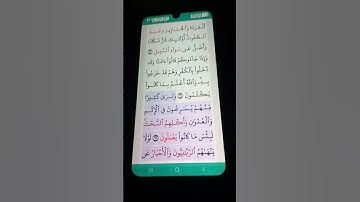 ٱلْقِرَدَةَ وَٱلْخَنَازِيرَ وَعَبَدَ
ٱلطَّٰغُوتَ أُو۟لَٰٓئِكَ شَرٌّ مَّكَانًا
وَأَضَلُّ عَن سَوَآءِ ٱلسَّبِيلِ
وَإِذَا جَآءُوكُمْ قَالُوٓا۟ ءَامَنَّا وَقَد
دَّخَلُوا۟ بِٱلْكُفْرِ وَهُمْ قَدْ خَرَجُوا۟
بِهِۦ وَٱللَّهُ أَعْلَمُ بِمَا كَانُوا۟
يَكْتُمُونَ وَتَرَىٰ كَثِيرًا
مِّنْهُمْ يُسَٰرِعُونَ فِى ٱلْإِثْمِ
وَٱلْعُدْوَٰنِ وَأَكْلِهِمُ ٱلسُّحْتَ
لَبِئْسَ مَا كَانُوا۟ يَعْمَلُونَ لَوْلَا
يَنْهَىٰهُمُ ٱلرَّبَّٰنِيُّونَ وَٱلْأَحْبَارُ عَن